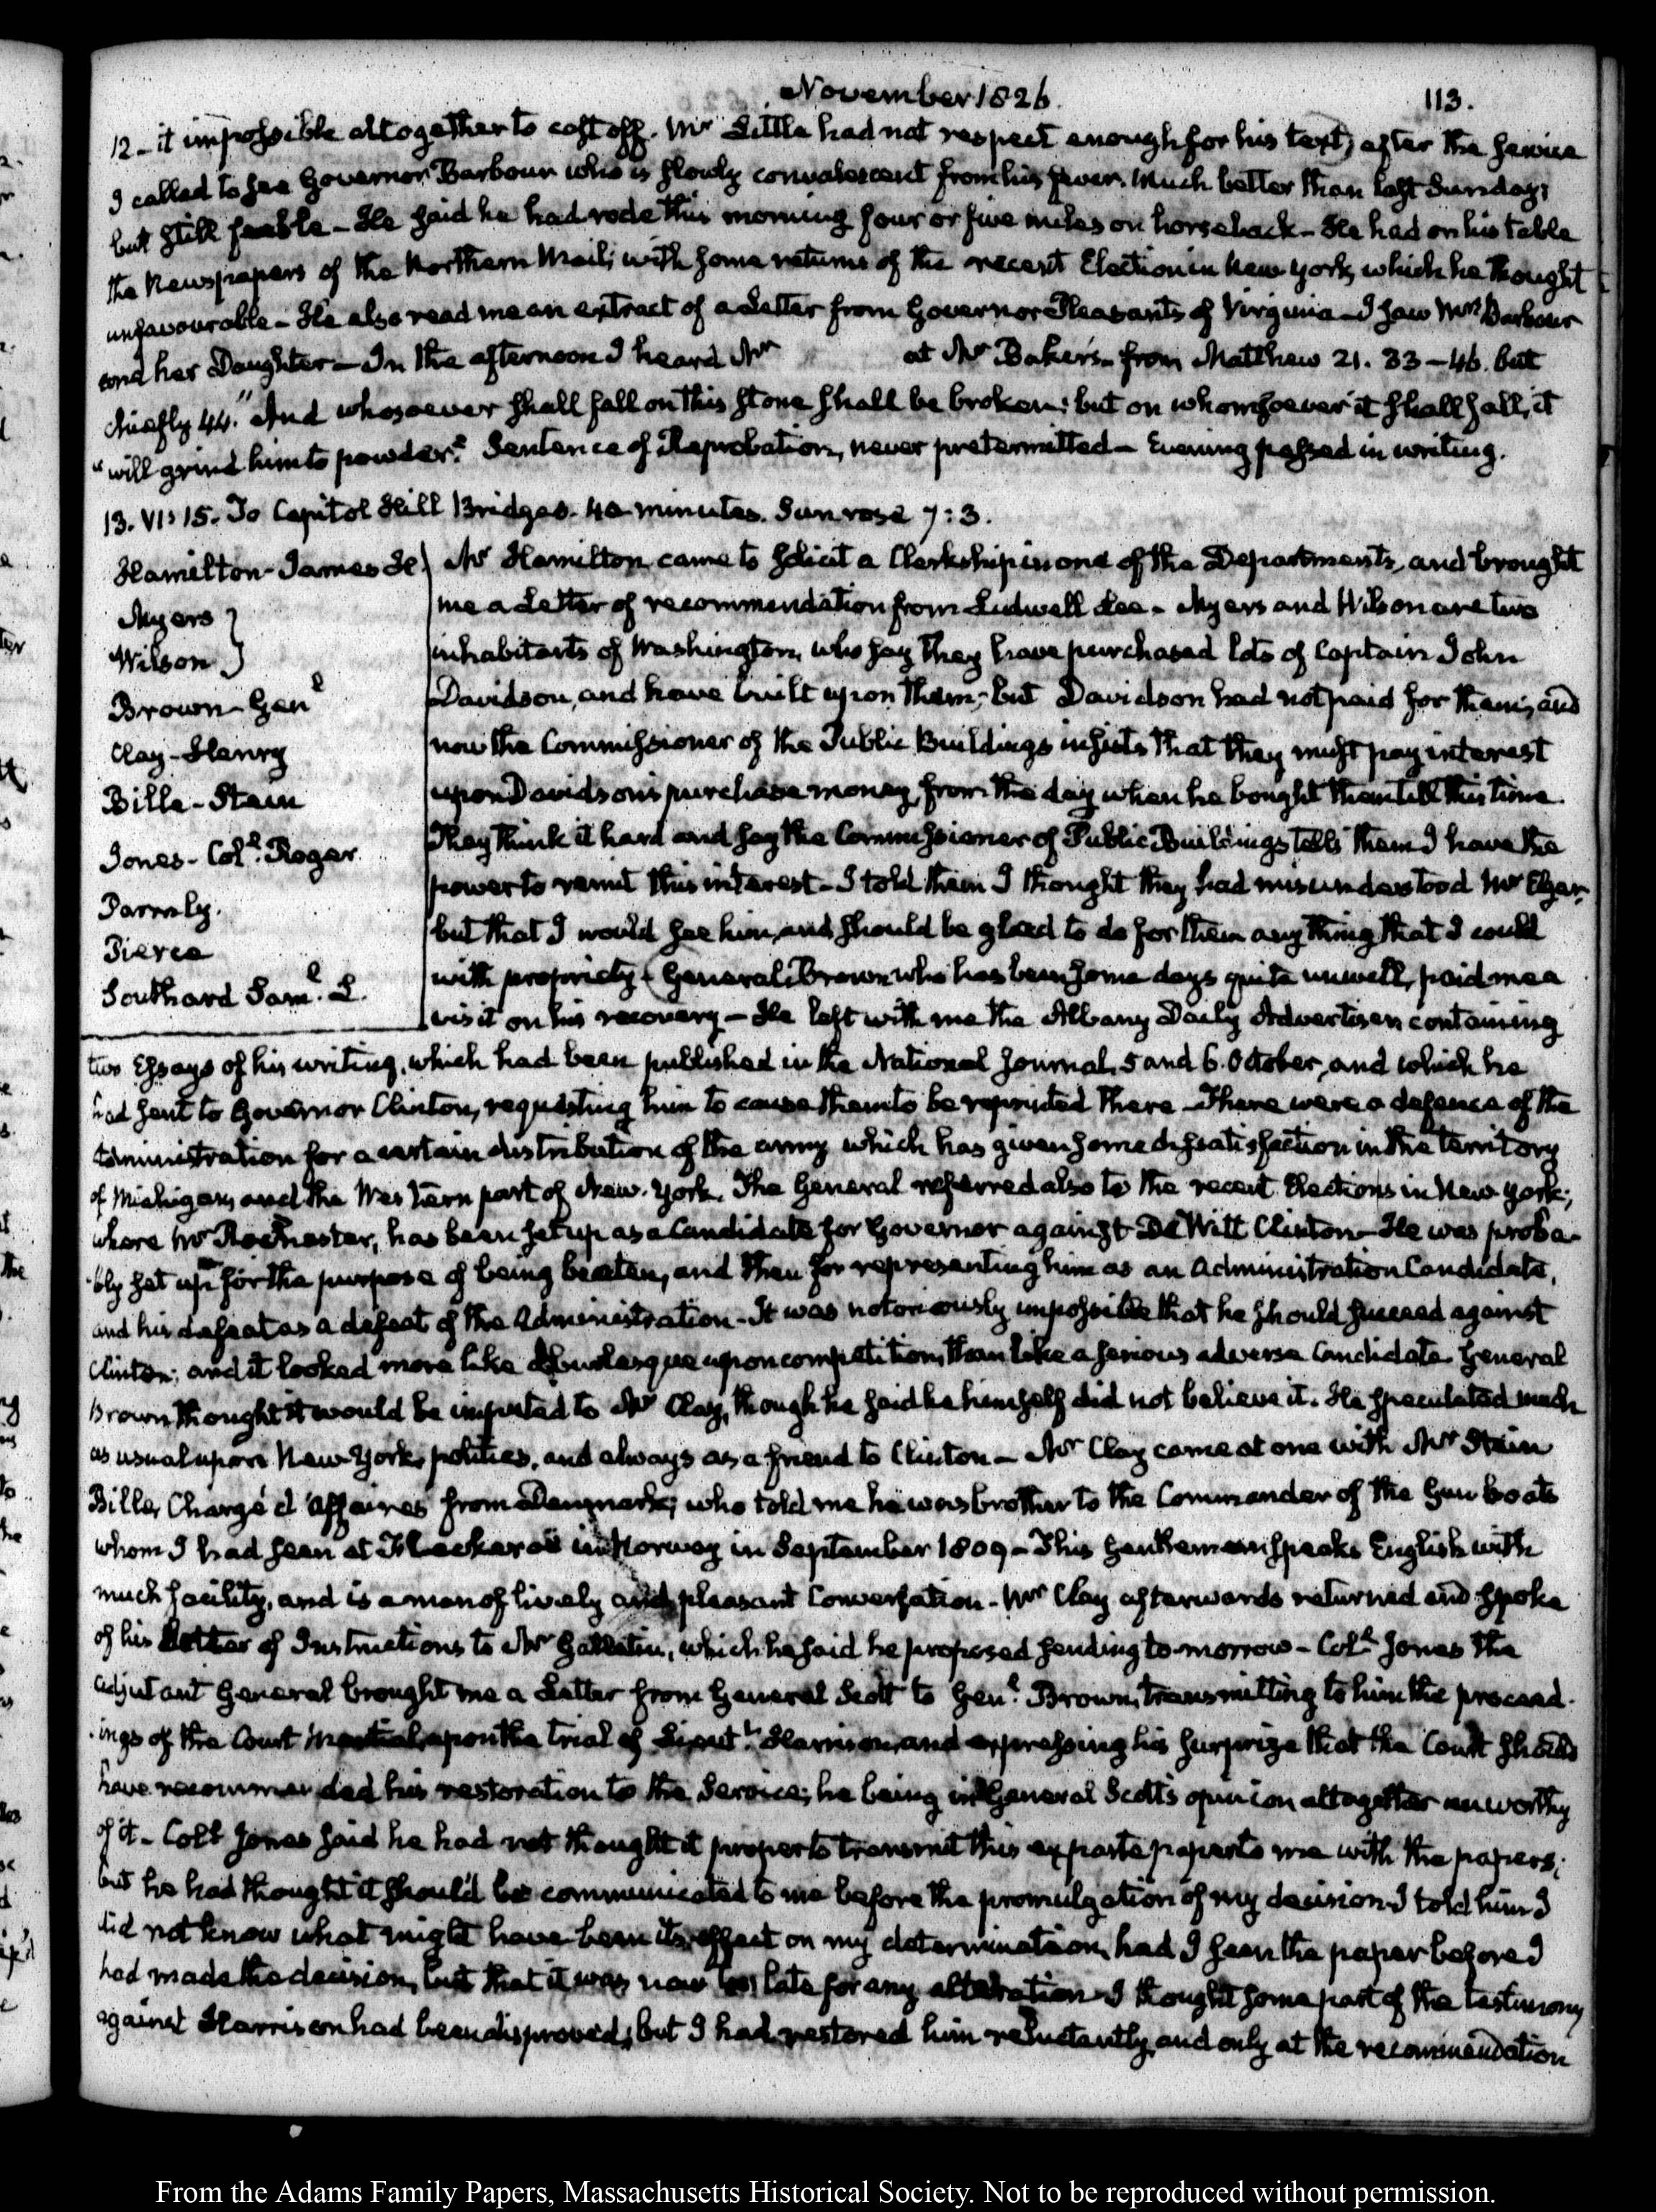 November 1826.
113.
12 - it impossible altogether to cast off. Mr Little had not respect enough for his text, after the service
I called to see Governor Barbour who is slowly convalescent from his fever. Much better than last Sunday;
but still feeble - He said he had rode this morning four or five miles on horseback - He had on his table
the Newspapers of the Northern Mail; with some returns of the recent Election in New York, which he thought
unfavourable - He also read me an extract of a Letter from Governor Pleasants of Virginia - I saw Mrs Barbour
and her Daughter - In the afternoon I heard Mr at Mr Baker's - from Matthew 21. 33-46. but
chiefly 44. "And whosoever shall fall on this stone shall be broken: but on whomsoever it shall fall, it
"will grind him to powder." Sentence of Reprobation, never pretermitted - Evening passed in writing.
13. VI: 15. To Capitol Hill Bridges. 40 minutes. Sun rose 7:3.
Hamilton - James
Myers
Wilson
Brown - Genl
Clay - Henry
Bille - Stein
Jones - Coll. Roger
Parrsly.
Pierce
Southard Saml. L.
Mr Hamilton came to solicit a Clerkship in one of the Departments, and brought
me a Letter of recommendation from Ludwell Lee - Myers and Wilson are two
inhabitants of Washington, who say they have purchased lots of Captain John
Davidson, and have built upon them; but Davidson had not paid for them; and
now the Commissioner of the Public Buildings insists that they must pay interest
upon Davidson's purchase money, from the day when he bought them till this time.
They think it hard and say the Commissioner of Public Buildings tells them I have the
power to remit this interest - I told them I thought they had misunderstood Mr Elgar,
but that I would see him, and should be glad to do for them any thing that I could
with propriety. General Brown who has been some days quite unwell, paid me a
visit on his recovery - He left with me the Albany Daily Advertiser containing
two Essays of his writing, which had been published in the National Journal, 5 and 6. October, and which he
had sent to Governor Clinton, requesting him to cause them to be reprinted there - There were a defence of the
Administration for a certain distribution of the army which has given some dissatisfaction in the territory
of Michigan, and the Western part of New-York. The General referred also to the recent Elections in New York;
where Mr Rochester, has been set up as a Candidate for Governor against De Witt Clinton - He was proba-
bly set up for the purpose of being beaten, and then for representing him as an Administration Candidate,
and his defeat as a defeat of the Administration - It was notoriously impossible that he should succeed against
Clinton; and it looked more like a burlesque upon competition, than like a serious adverse Candidate. General
Brown thought it would be imputed to Mr Clay, though he said he himself did not believe it. He speculated much
as usual upon New-York politics, and always as a friend to Clinton - Mr Clay came at one with Mr Stein
Bille, Chargé d'Affaires from Denmark; who told me he was brother to the Commander of the Gun boats
whom I had seen at in Norway in September 1809 - This Gentleman speaks English with
much facility, and is a man of lively and pleasant Conversation - Mr Clay afterwards returned and spoke
of his Letter of Instructions to Mr Gallatin, which he said he proposed sending to-morrow - Coll Jones the
Adjutant General brought me a Letter from General Scott to Genl. Brown, transmitting to him the proceed-
ings of the Court Martial, upon the trial of Lieutt. Harrison, and expressing his surprize that the Court should
have recommended his restoration to the Service; he being in General Scott's opinion altogether unworthy
of it - Coll Jones said he had not thought it proper to transmit this exparte paper to me with the papers;
but he had thought it should be communicated to me before the promulgation of my decision. I told him I
did not know what might have been its effect on my determination, had I seen the paper before I
had made the decision, but that it was now too late for any alteration - I thought some part of the testimony
against Harrison had been disproved; but I had restored him reluctantly, and only at the recommendation
From the Adams Family Papers, Massachusetts Historical Society. Not to be reproduced without permission.